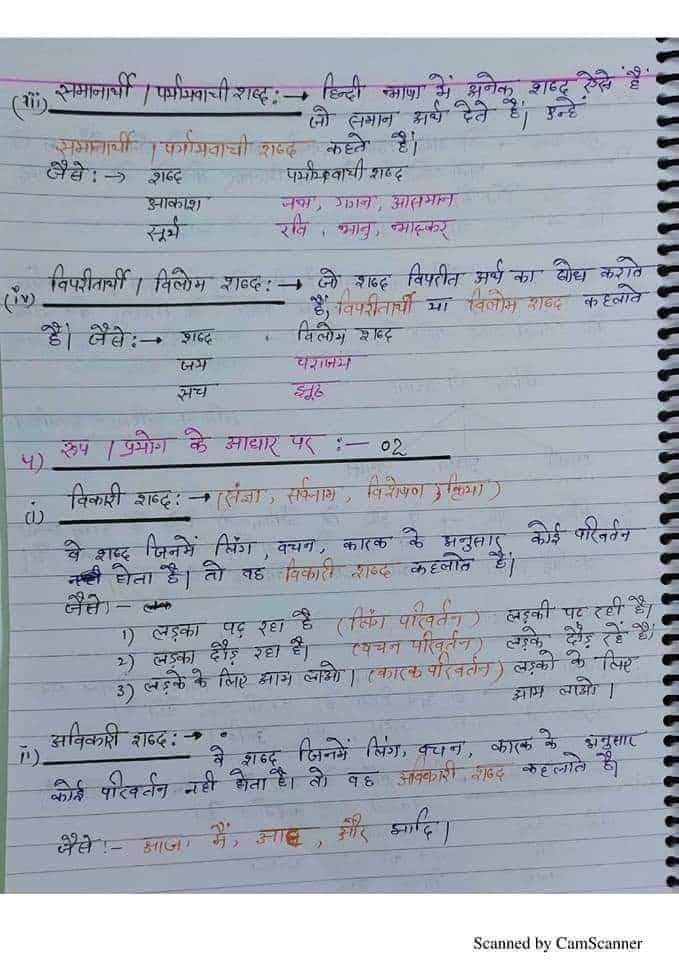 (iii) समानार्थी / पर्यायवाची शब्द :→ हिन्दी भाषा में अनेक शब्द ऐसे हैं
जो समान अर्थ देते हैं। इन्हें
समानार्थी / पर्यायवाची शब्द कहते हैं।
जैसे :→ शब्द पर्यायवाची शब्द
आकाश नभ, गगन, आसमान
सूर्य रवि, भानु, भास्कर
(iv) विपरीतार्थी / विलोम शब्द :→ जो शब्द विपरीत अर्थ का बोध कराते
हैं, विपरीतार्थी या विलोम शब्द कहलाते
हैं। जैसे :→ शब्द विलोम शब्द
जय पराजय
सच झूठ
5) रूप / प्रयोग के आधार पर :- 02
(i) विकारी शब्द :→ (संज्ञा, सर्वनाम, विशेषण, क्रिया)
वे शब्द जिनमें लिंग, वचन, कारक के अनुसार कोई परिवर्तन
होता है। तो वह विकारी शब्द कहलाते हैं।
जैसे :-
1) लड़का पढ़ रहा है (लिंग परिवर्तन) लड़की पढ़ रही है।
2) लड़का दौड़ रहा है। (वचन परिवर्तन) लड़के दौड़ रहे हैं।
3) लड़के के लिए आम लाओ। (कारक परिवर्तन) लड़को के लिए
आम लाओ।
ii) अविकारी शब्द :→
वे शब्द जिनमें लिंग, वचन, कारक के अनुसार
कोई परिवर्तन नही होता है। तो वह अविकारी शब्द कहलाते है।
जैसे :- आज, में, और आदि।
Scanned by CamScanner